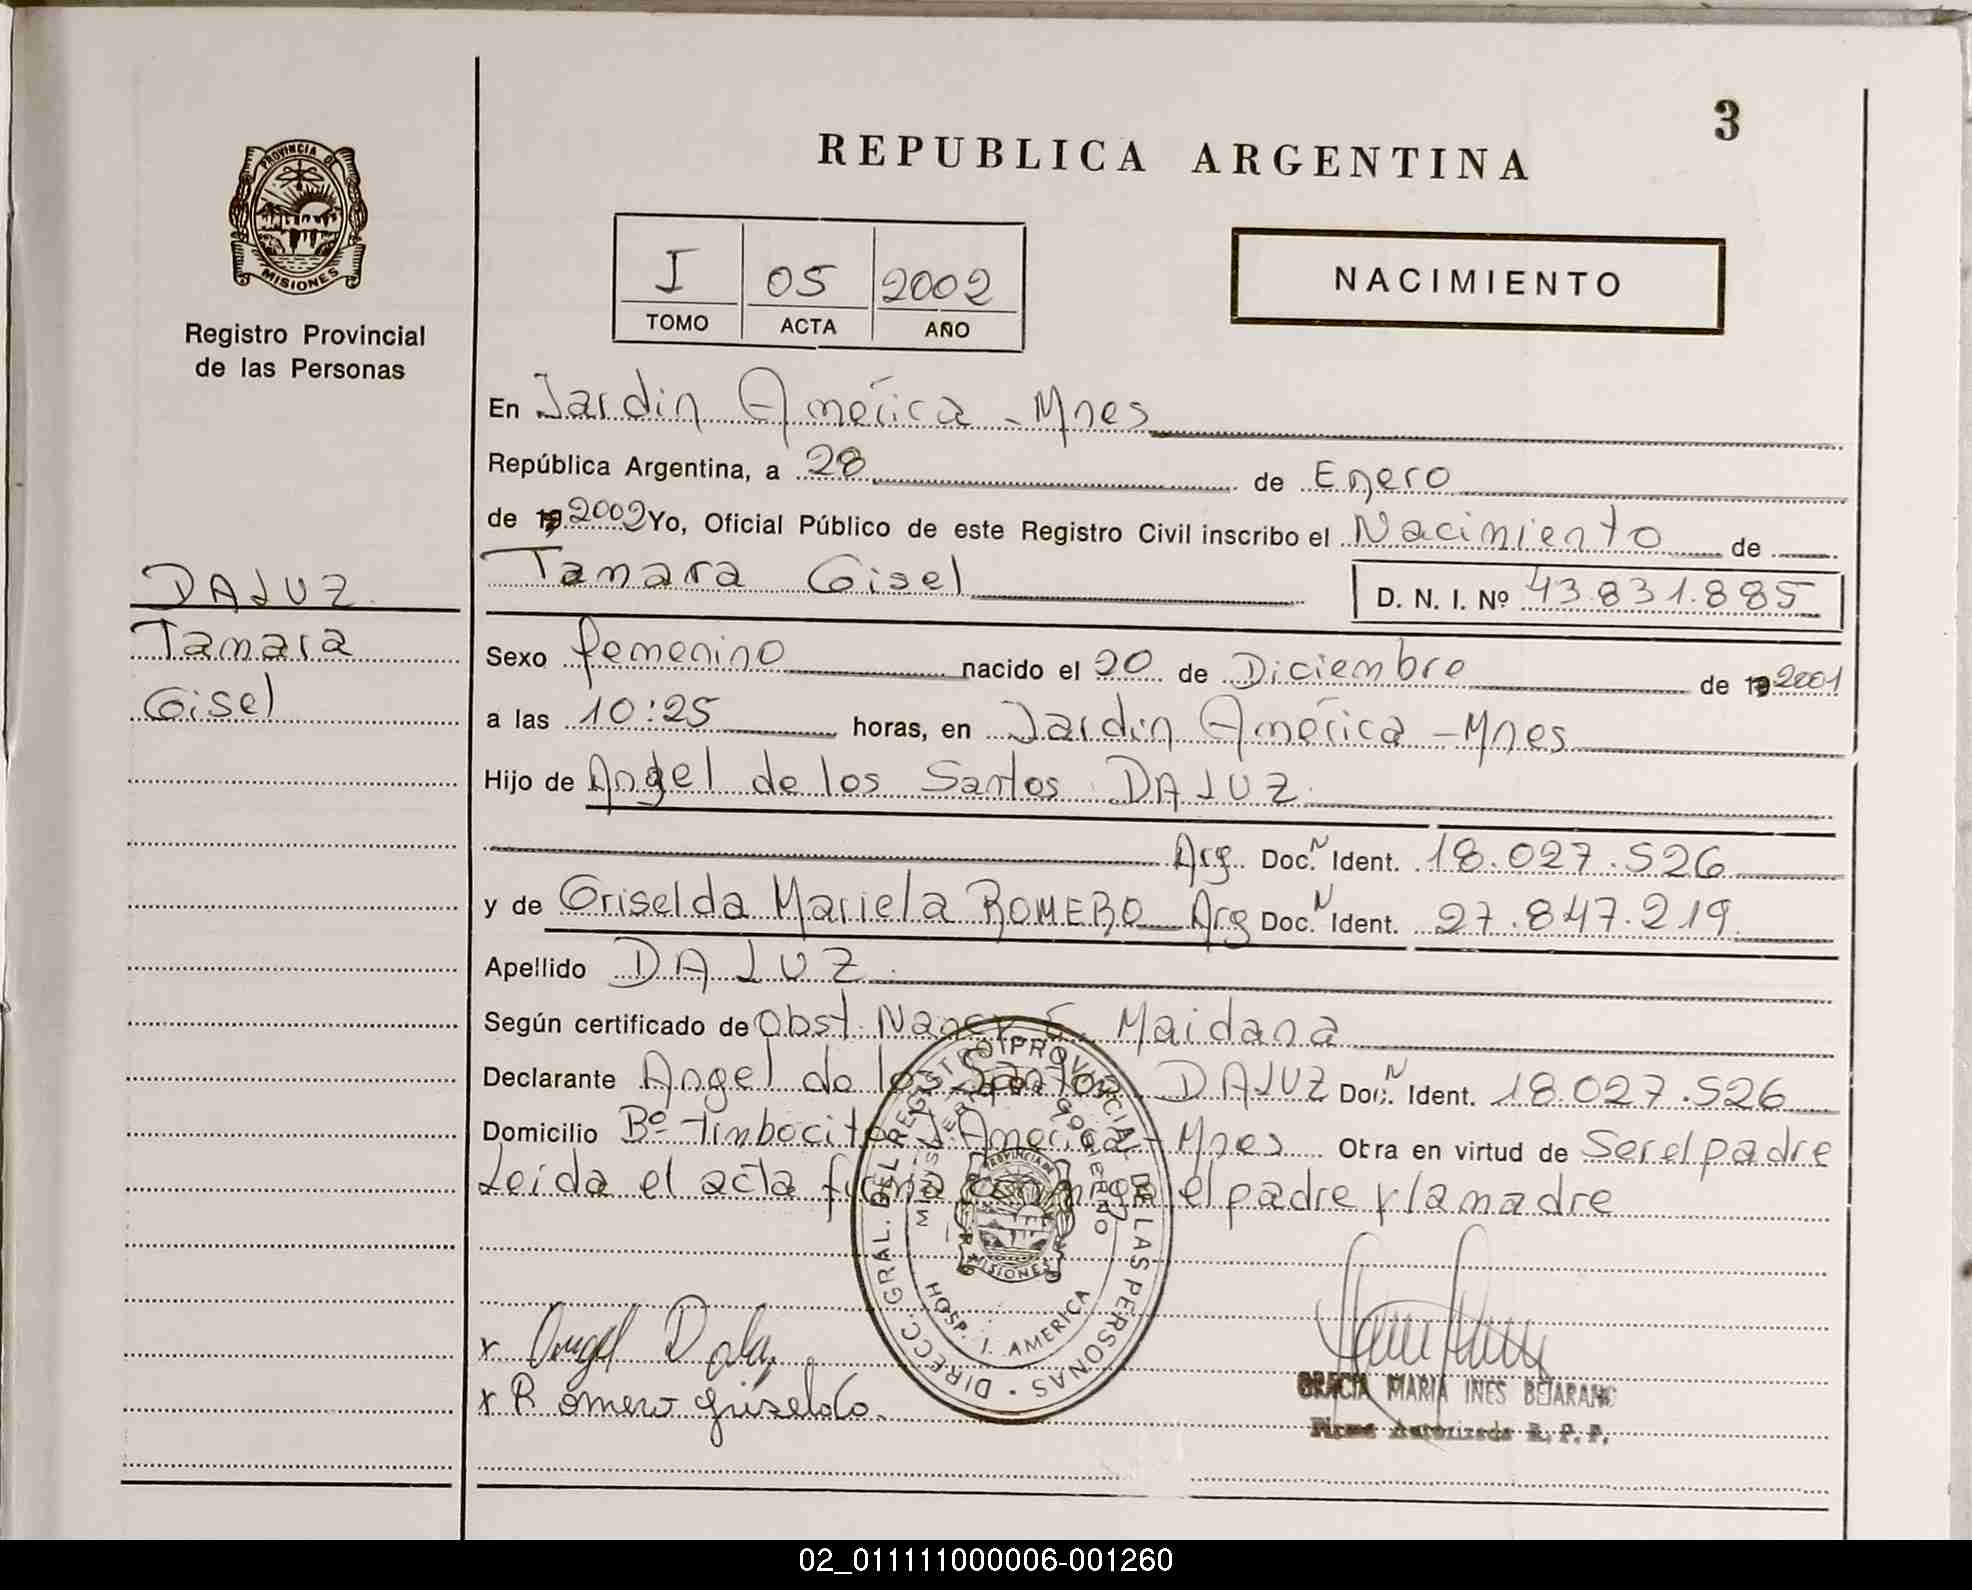 3
REPUBLICA ARGENTINA
PROVINCIA DE
MISIONES
Registro Provincial
de las Personas
I 05 2002
TOMO ACTA AÑO
NACIMIENTO
En Jardin América - Mnes
República Argentina, a 28 de Enero
de 19 2002 Yo, Oficial Público de este Registro Civil inscribo el Nacimiento de
Tamara Gisel D. N. I. Nº 43.831.885
DALUZ
Tamara
Gisel
Sexo femenino nacido el 20 de Diciembre de 19 2001
a las 10:25 horas, en Jardin América - Mnes
Hijo de Angel de los Santos DALUZ
Arg. Doc. N Ident. 18.027.526
y de Griselda Mariela ROMERO Arg Doc. N Ident. 27.847.219
Apellido DA LUZ
Según certificado de Obst. Nancy E. Maidana
Declarante Angel de los Santos DALUZ Doc. N Ident. 18.027.526
Domicilio Bº Timbocito J. América - Mnes Otra en virtud de Ser el padre
Leida el acta firma conmigo el padre y la madre
DIRECC. GRAL. DEL REGISTRO PROVINCIAL DE LAS PERSONAS
MINISTERIO DE GOBIERNO
PROVINCIA DE
MISIONES
HOSP. J. AMERICA
x Angel Dalu
x Romero Griselda.
GRACIA MARIA INES BEJARANO
Firma Autorizada R. P. P.
02_011111000006-001260